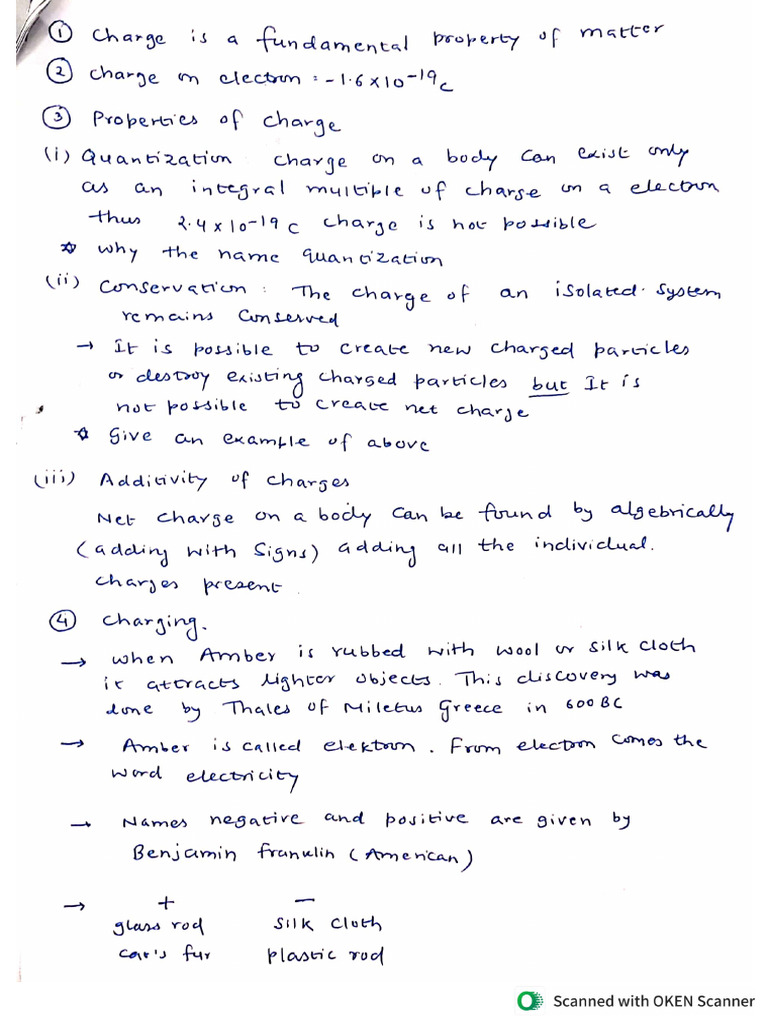 ① Charge is a fundamental property of matter
② charge on electron : -1.6×10⁻¹⁹C
③ Properties of charge
(i) Quantization charge on a body can exist only
as an integral multiple of charge on a electron
thus 2.4×10⁻¹⁹ C charge is not possible
☆ why the name quantization
(ii) conservation : The charge of an isolated system
remains conserved
→ It is possible to create new charged particles
or destroy existing charged particles but It is
not possible to create net charge
☆ Give an example of above
(iii) Additivity of charges
Net charge on a body can be found by algebrically
(adding with signs) adding all the individual.
charges present.
④ charging.
→ when Amber is rubbed with wool or silk cloth
it attracts lighter objects. This discovery was
done by Thales of Miletus Greece in 600 BC
→ Amber is called elektron. From electron comes the
word electricity
→ Names negative and positive are given by
Benjamin franklin (American)
→ + –
glass rod silk cloth
cat's fur plastic rod
Scanned with OKEN Scanner